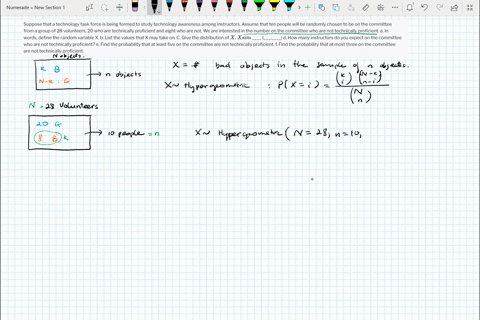 Numerade » New Section 1
Suppose that a technology task force is being formed to study technology awareness among instructors. Assume that ten people will be randomly chosen to be on the committee
from a group of 28 volunteers, 20 who are technically proficient and eight who are not. We are interested in the number on the committee who are not technically proficient. a. In
words, define the random variable X. b. List the values that X may take on. C. Give the distribution of X. X ~ ___(___,___) d. How many instructors do you expect on the committee
who are not technically proficient? e. Find the probability that at least five on the committee are not technically proficient. f. Find the probability that at most three on the committee
are not technically proficient.
N objects.
K B
N-K : G
→ n objects
X = # bad objects in the sample of n objects.
X ~ Hypergeometric : P(X = i) = (K i) (N-K n-i) / (N n)
N = 28 Volunteers
20 G
8 B K
→ 10 people = n
X ~ Hypergeometric ( N = 28, n = 10,